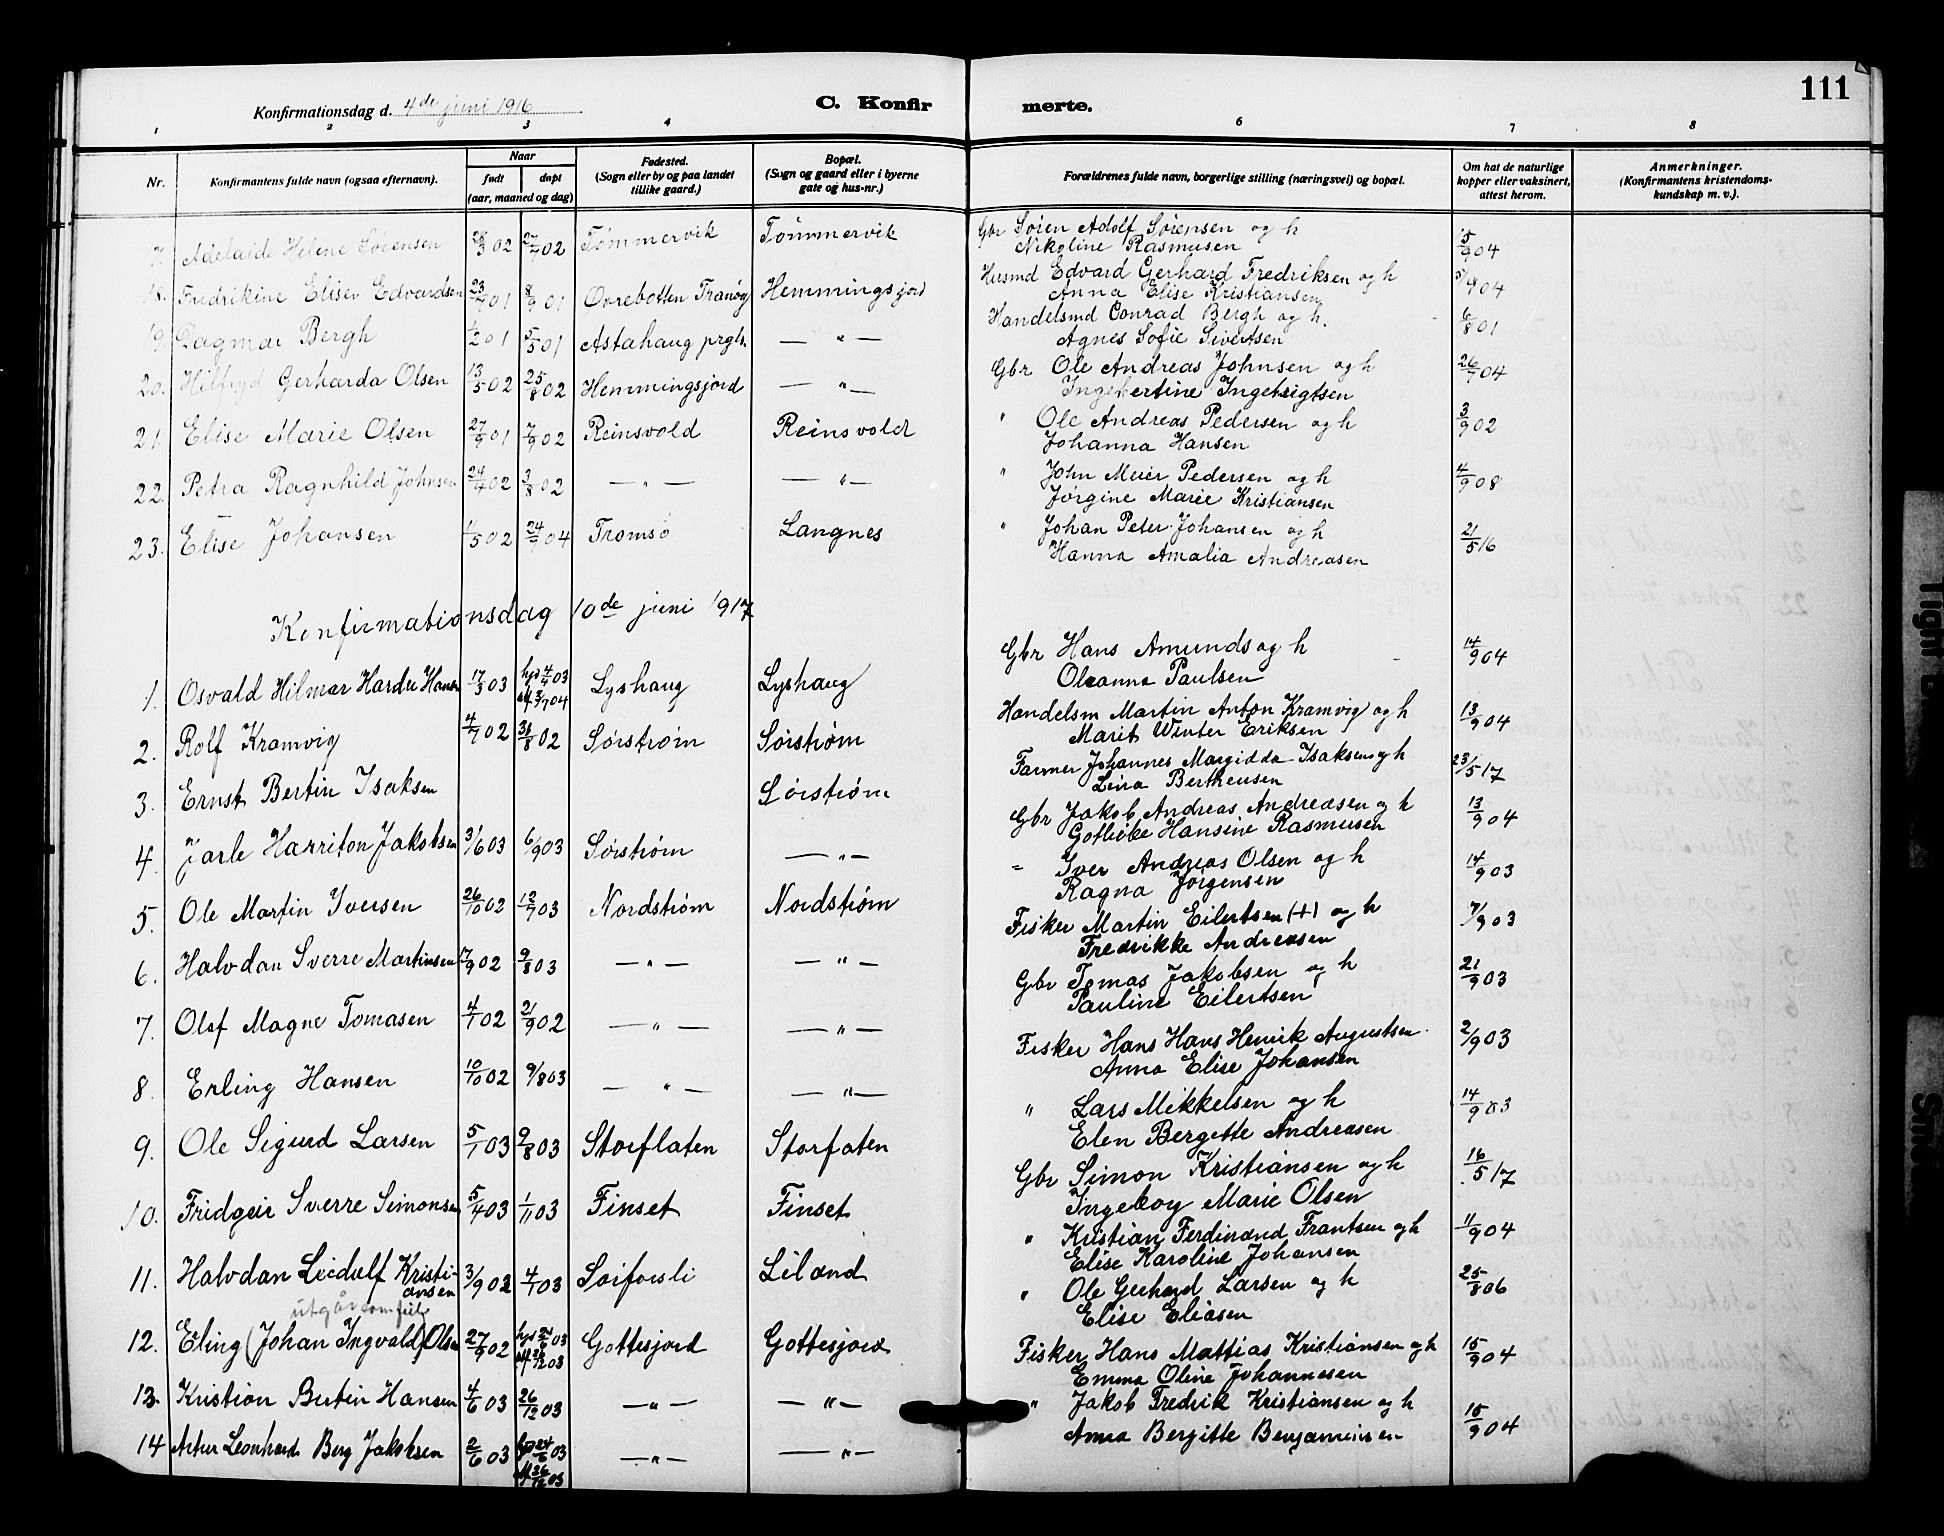 111
Konfirmationsdag d. 4de juni 1916
C. Konfir merte.
1 2 3 4 5 6 7 8
Nr.
Konfirmantens fulde navn (ogsaa efternavn).
Naar
født døpt
(aar, maaned og dag)
Fødested.
(Sogn eller by og paa landet
tillike gaard.)
Bopæl.
(Sogn og gaard eller i byerne
gate og hus-nr.)
Forældrenes fulde navn, borgerlige stilling (næringsvei) og bopæl.
Om hat de naturlige
kopper eller vaksinert,
attest herom.
Anmerkninger.
(Konfirmantens kristendoms-
kundskap m. v.)
7. Adelaide Helene Sørensen 28/3 02 27/7 02 Tømmervik Tømmervik Gbr Søren Adolf Sørensen og h 15/9 04
Nikoline Rasmusen
18. Fredrikine Elisev Edvardsen 23/7 01 8/9 01 Ovrebotten Tranøy Hemmingsjord Husmd Edvard Gerhard Fredriksen og h 5/9 04
Anna Elise Kristiansen
19. Dagmar Bergh 1/2 01 5/5 01 Astahaug prgls. — " — Handelsmd Conrad Bergh og h. 6/8 01
Agnes Sofie Sivertsen
20. Hilfryd Gerharda Olsen 13/5 02 25/8 02 Hemmingsjord — " — Gbr Ole Andreas Johnsen og h 26/7 04
Ingebertine Ingebrigtsen
21. Elise Marie Olsen 27/9 01 7/9 02 Reinsvold Reinsvold " Ole Andreas Pedersen og h 3/9 02
Johanna Hansen
22. Petra Ragnhild Johnsen 24/4 02 3/8 02 — " — — " — " John Meier Pedersen og h 4/9 08
Jørgine Marie Kristiansen
23. Elise Johansen 11/5 02 24/7 04 Tromsø Langnes " Johan Peter Johansen og h 21/5 16
Hanna Amalia Andreasen
Konfirmationsdag 10de juni 1917
1. Osvald Hilmar Hardu Hansen 17/3 03 hjd 4/4 03 Lyshaug Lyshaug Gbr Hans Amunds og h 14/9 04
stf 3/7 04 Oleanna Paulsen
2. Rolf Kramvig 4/7 02 31/8 02 Sørstrøm Sørstrøm Handelsm Martin Anton Kramvig og h 13/9 04
Marit Winter Eriksen
3. Ernst Bertin Isaksen Sørstrøm Farmer Johannes Margidda Isaksen og h 23/5 17
Lina Bertheusen
4. Jarle Harriton Jakobsen 3/6 03 6/9 03 Sørstrøm — " — Gbr Jakob Andreas Andreasen og h 13/9 04
Gotliebe Hansine Rasmusen
5. Ole Martin Iversen 26/10 02 12/7 03 Nordstrøm Nordstrøm " Iver Andreas Olsen og h 14/9 03
Ragna Jørgensen
6. Halvdan Sverre Martinsen 17/9 02 9/8 03 — " — — " — Fisker Martin Eilertsen (+) og h 7/9 03
Fredrikke Andreasen
7. Olaf Magne Tomasen 4/1 02 21/9 02 — " — — " — Gbr Tomas Jakobsen og h 21/9 03
Pauline Eilertsen
8. Erling Hansen 10/10 02 9/8 03 — " — — " — Fisker Hans Hans Henrik Augustsen 2/9 03
Anna Elise Johansen
9. Ole Sigurd Larsen 5/1 03 9/8 03 Storflaten Storfaten " Lars Mikkelsen og h 14/9 03
Elen Bergette Andreasen
10. Fridgeir Sverre Simonsen 5/4 03 1/11 03 Finset Finset Gbr Simon Kristiansen og h 16/5 17
Ingeboy Marie Olsen
11. Halvdan Leidulf Kristi- 3/9 02 4/1 03 Sørforsli Liland " Kristian Ferdinand Frantsen og h 11/9 04
ansen Elise Karoline Johansen
utgår som feil
12. Erling (Johan Ingvald) Olsen 27/9 02 hjd 21/6 03 Gottesjord Gottesjord " Ole Gerhard Larsen og h 25/8 06
stf 26/12 03 Elise Eliasen
13. Kristian Bertin Hansen 4/6 03 26/12 03 — " — — " — Fisker Hans Mattias Kristiansen og h 15/9 04
Emma Oline Johannesen
14 Artur Leonhard Berg Jakobsen 2/6 03 hjd 24/6 03 — " — — " — " Jakob Fredrik Kristiansen og h 15/9 04
stf 26/12 03 Anna Bergitte Benjaminsen